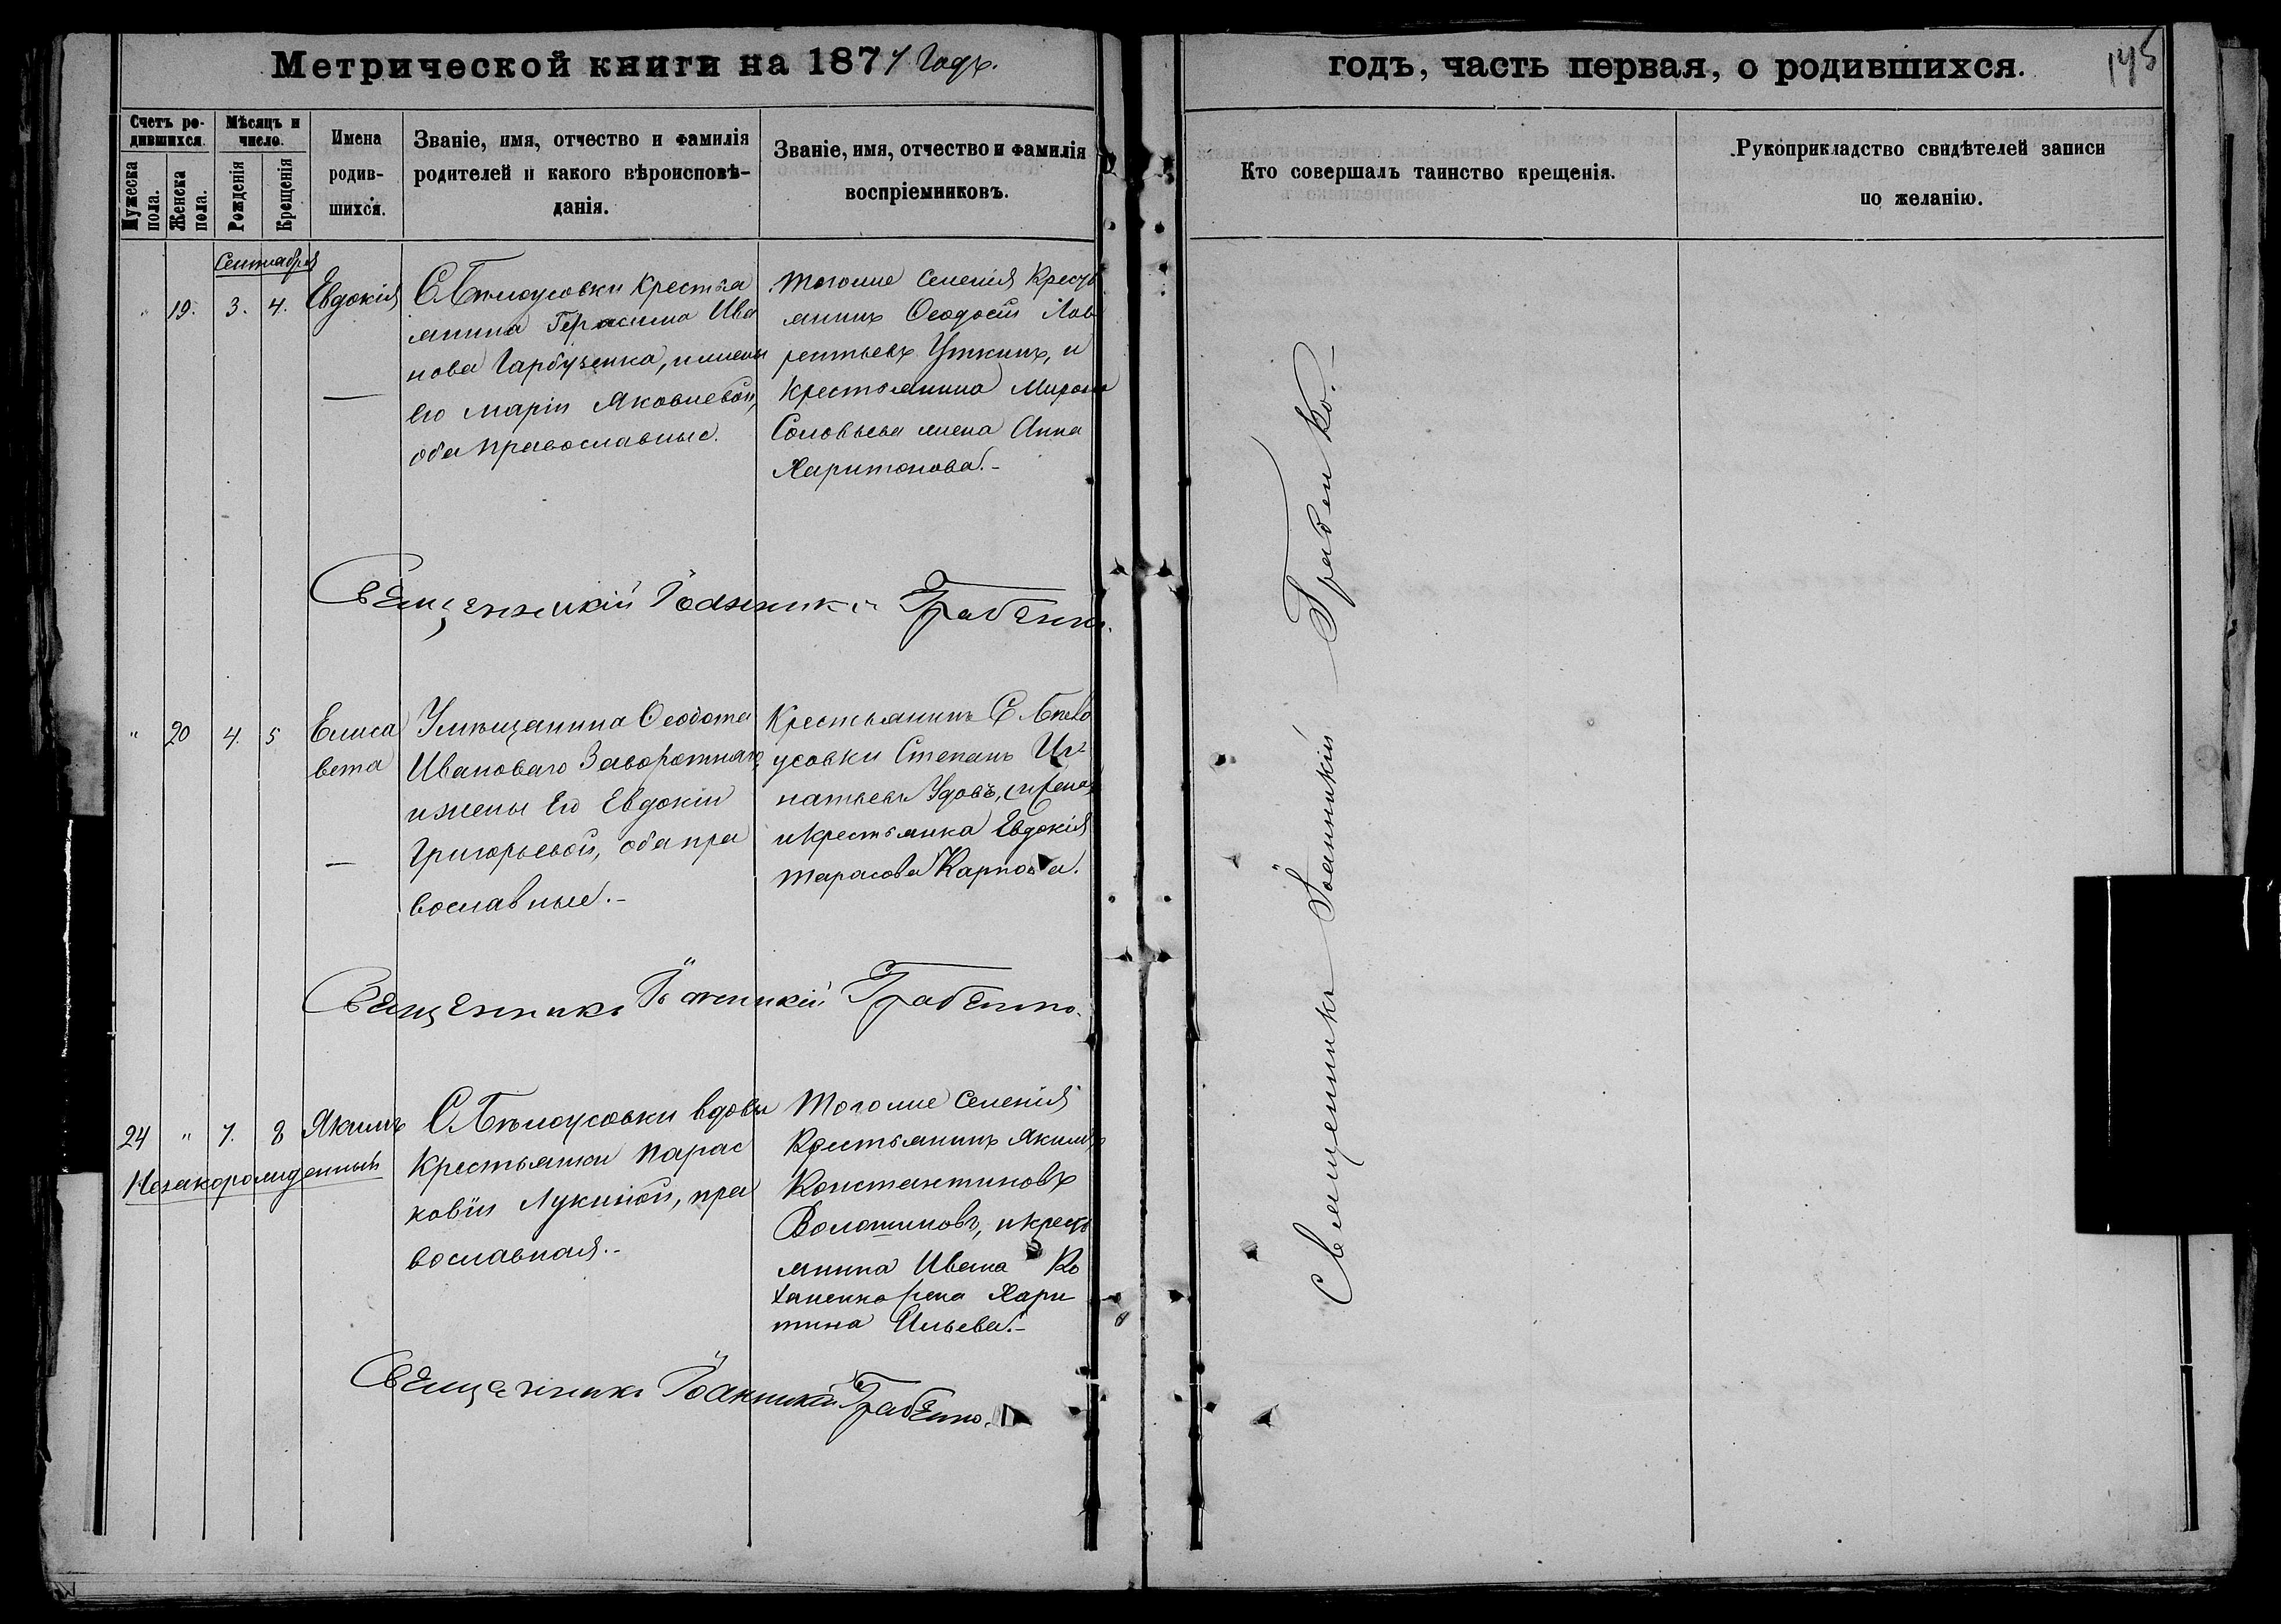 Метрической книги на 1877 Годъ.
годъ, часть первая, о родившихся.
145
Счетъ ро-
дившихся.
Мужеска
пола.
Женска
пола.
Мѣсяцъ и
число.
Рожденія
Крещенія
Имена
родив-
шихся.
Званіе, имя, отчество и фамилія
родителей и какого вѣроисповѣ-
данія.
Званіе, имя, отчество и фамилія
воспріемниковъ.
Кто совершалъ таинство крещенія.
Рукоприкладство свидѣтелей записи
по желанію.
Сентября
" 19. 3. 4. Евдокія
С. Бѣлоусовки крестья
янина Герасима Ива
нова Гарбузенка, и жены
его Маріи Яковлевой,
оба православные.
Тогоже селенія Кресть
янинъ Ѳеодосій Лав
рентьевъ Уткинъ, и
крестьянина Мирона
Соловьева жена Анна
Харитонова.-
Священникъ Іоанникій Грабенко.
" 20 4. 5 Елиса
вета
Ивановаго Заворотняго,
и жены его Евдокіи
Григорьевой, оба пра
вославные.-
Крестьянинъ С. Бѣло
усовки Степанъ Иг-
натьевъ Удовъ,
и крестьянка Евдокія
Тарасова Карпова.
Священникъ Іоанникій Грабенко.
24 " 7. 8 Якимъ
Незаконорожденный
С. Бѣлоусовки вдовы
Крестьянки Парас
ковіи Лукиной, пра
вославная.-
Тогоже селенія
Крестьянинъ Якимъ
Константиновъ
Волошиновъ, и кресть
янина Ивана Ко
ханенко жена Хари
тина Ильева.-
Священникъ Іоанникій Грабенко.
Священникъ Іоанникій Грабенко.-